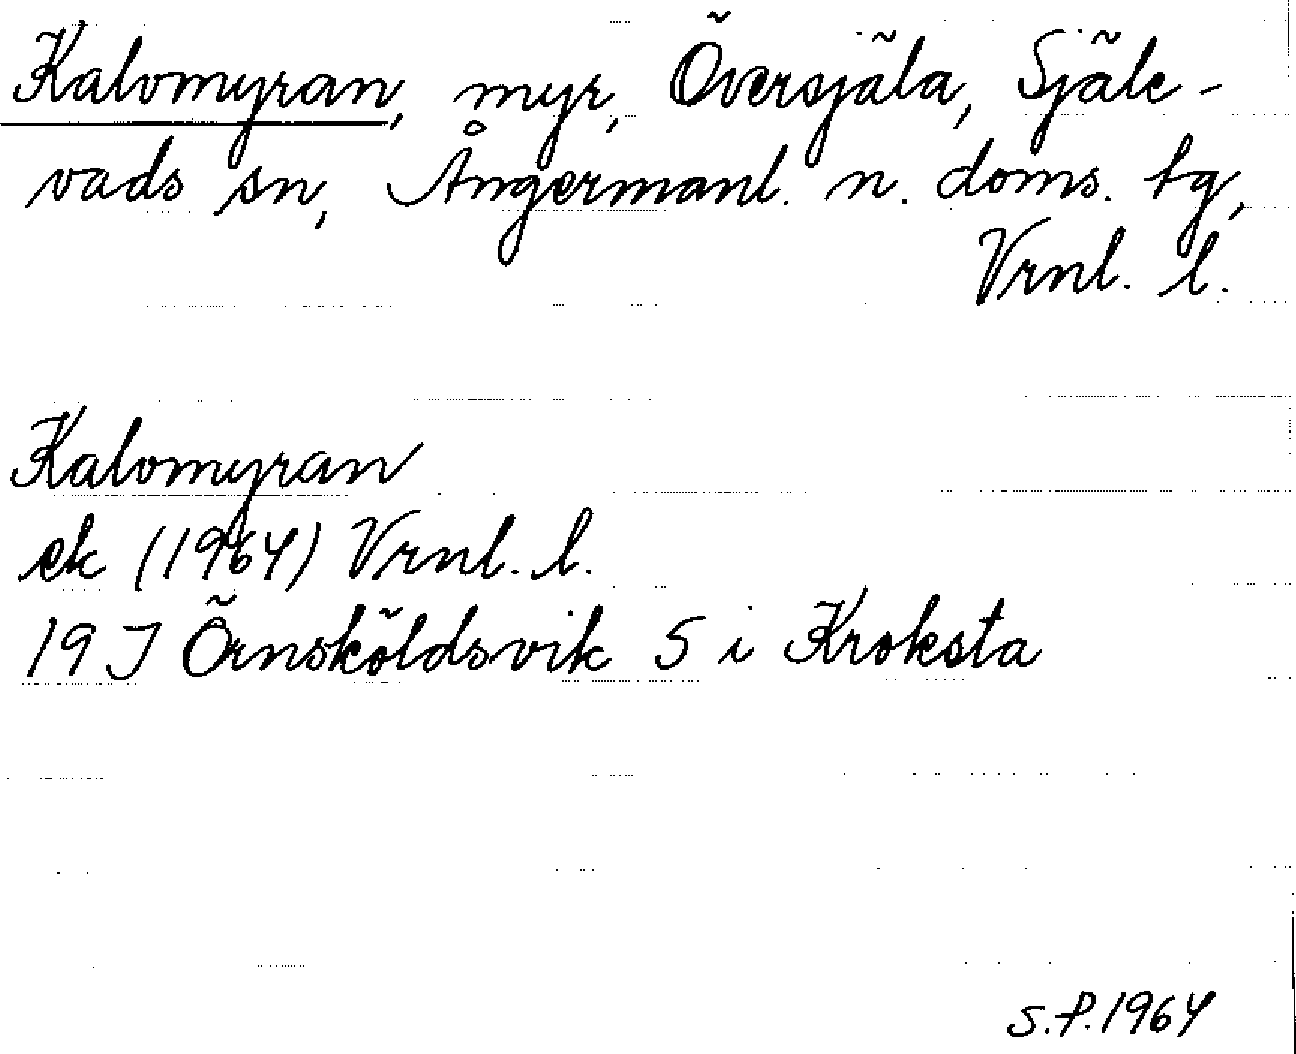 Kalvmyran, myr, Översjäla, Själe-
vads sn, Ångermanl. n. doms. tg,
Vrnl. l.
Kalvmyran
ek (1964) Vrnl. l.
19 J Örnsköldsvik S i Kroksta
S.P. 1964